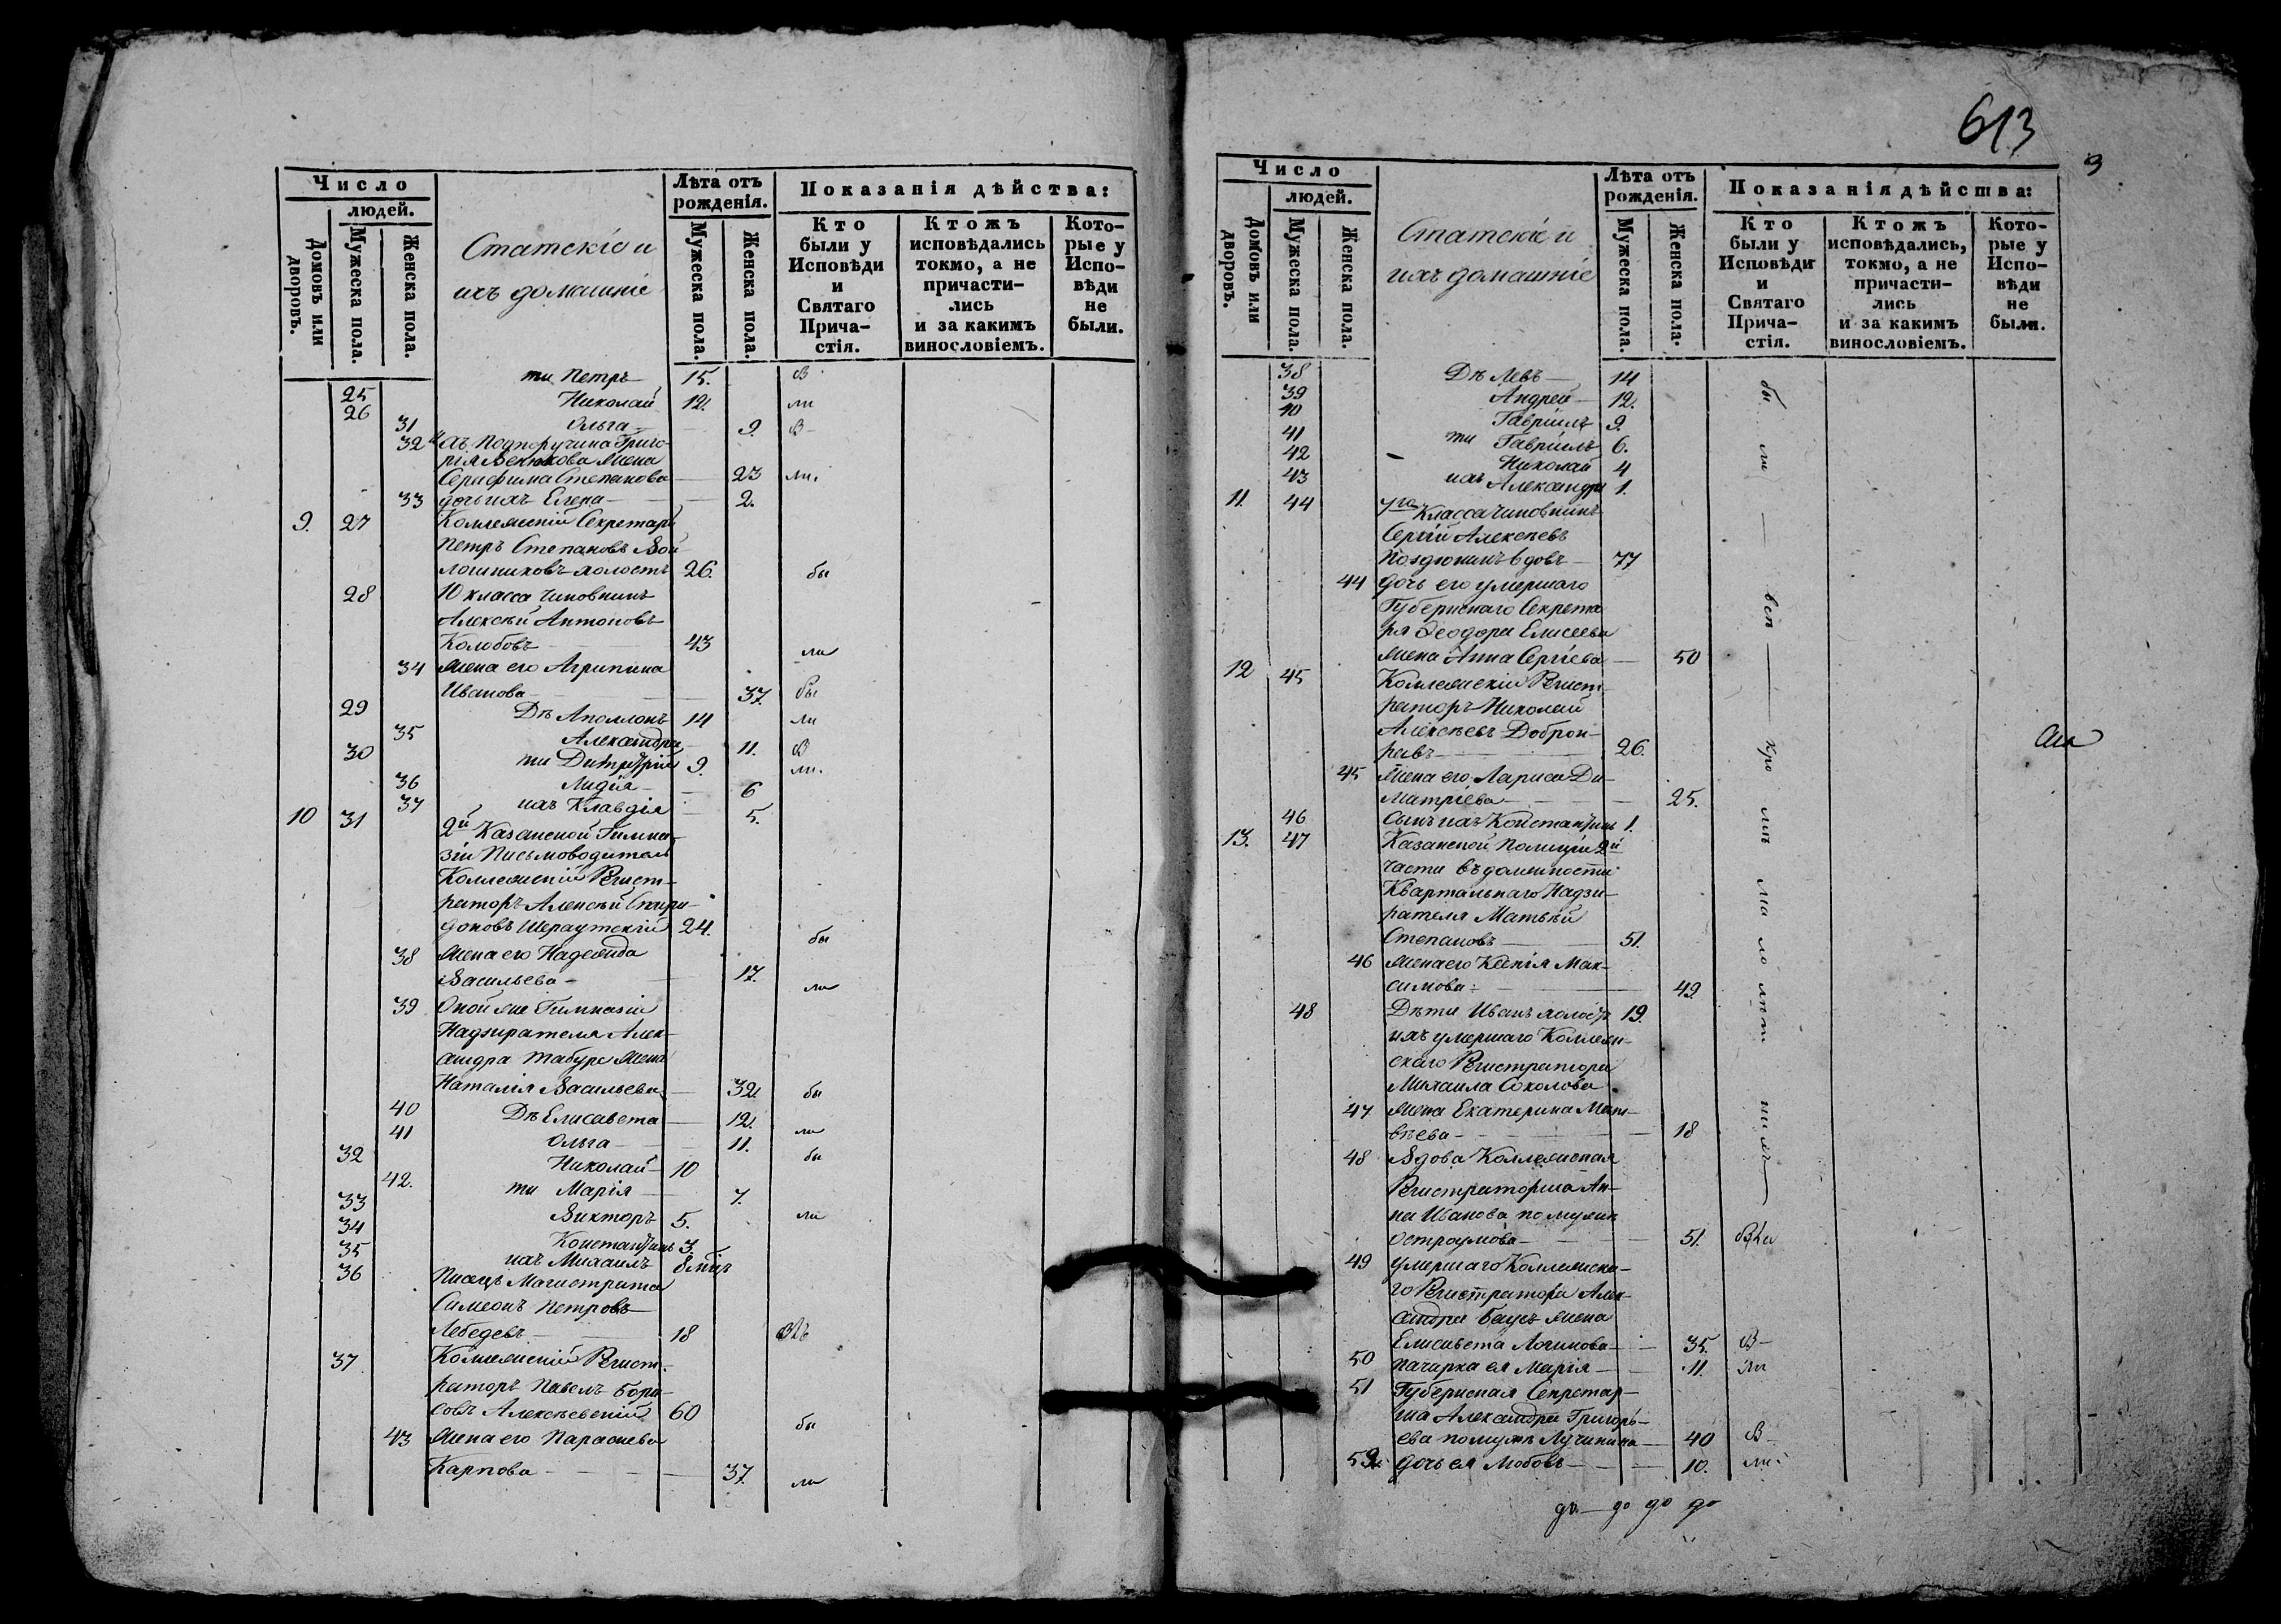 Число
людей.
Домовъ или дворовъ.
Мужеска пола.
Женска пола.
Статскіе и
ихъ домашніе
Лѣта отъ
рожденія.
Мужеска пола.
Женска пола.
Показанія дѣйства:
Кто были у Исповѣди и Святаго Прича- стія.
Ктожъ исповѣдались токмо, а не причасти- лись и за какимъ винословіемъ.
Кото- рые у Испо- вѣди не были.
25 ти Петръ 15. В
26 Николай 12. ли
31 Ольга 9. В
32 Подпоручика Григо-
рія жена
Серафима Степанова 23 ли.
33 дочь ихъ Елена 2.
9. 27 Коллежскій Секретарь
Петръ Степановъ Вой
лошниковъ холостъ 26. бы
28 10 класса чиновникъ
Алексѣй Антоновъ
Колобовъ 43 ли
34 жена его Агрипина
Иванова 37. бы
29 Дѣ Аполлонъ 14 ли
35 Александра 11. В
30 ти Дитрій 9. ли.
36 Лидія 6
37 ихъ Клавдія 5.
10 31 2й Казанской Гимна-
зіи Письмоводитель
Коллежскій Регист-
раторъ Алексѣй Спири-
доновъ Шераутскій 24. бы
38 жена его Надежда
Васильева 17. ли
39 Оной же Гимназіи
Надзирателя Алек-
сандра Табуре жена
Наталія Васильева 32. бы
40 Дѣ Елисавета 12. ли
41 Ольга 11. бы
32 Николай 10
42. ти Марія 7.
33 Викторъ 5. ли
34 Константинъ 3.
35 ихъ Михаилъ 8 мѣц
36 Писецъ Магистрата
Симеонъ Петровъ
Лебедевъ 18
37 Коллежскій Регист-
раторъ Павелъ Бори-
совъ Алексѣевскій 60 бы
43 жена его Параскева
Карпова 37. ли
613
9
Число
людей.
Домовъ или дворовъ.
Мужеска пола.
Женска пола.
Статскіе и
ихъ домашніе
Лѣта отъ
рожденія.
Мужеска пола.
Женска пола.
Показанія дѣйства:
Кто были у Исповѣди и Святаго Прича- стія.
Ктожъ исповѣдались, токмо, а не причасти- лись и за какимъ винословіемъ.
Кото- рые у Испо- вѣди не были.
38 Дѣ Левъ 14
39 Андрей 12.
40 Гавріилъ 9.
41 ти Гавріилъ 6.
42 Николай 4
43 ихъ Александръ 1.
бы ли всѣ кро мѣ ма ло лѣт нихъ
11. 44 7го Класса чиновникъ
Сергій Алексѣевъ
Поздюнинъ вдовъ 77
44 дочь его умершаго
Губернскаго Секрета
ря Ѳеодора Елисеева
жена Анна Сергіева 50
12 45 Коллежскій Регист-
раторъ Николай
Алексѣевъ Доброн-
равъ 26.
45 Жена его Лариса Ди-
митріева 25.
46 сынъ ихъ Константинъ 1.
13. 47 Казанской Полиціи 2й
части въ должности
Квартальнаго Надзи-
рателя Матвѣй
Степановъ 51.
46 жена его Ксенія Мак-
симова 49.
48 Дѣти Иванъ холостъ 19.
ихъ умершаго Коллеж-
скаго Регистратора
Михаила Соколова
47 жена Екатерина Мат-
вѣева 18
48 Вдова Коллежская
Регистраторша Ан-
на Иванова по мужѣ
Остроумова 51.
49 умершаго Коллежска-
го Регистратора Алек-
сандра жена
Елисавета Логинова 35. В
50 пачарка ея Марія 11. ли
51 Губернская Секретар-
ша Александра Григорь-
ева по мужѣ Лучинина 40 В
52 дочь ея Любовь 10. ли